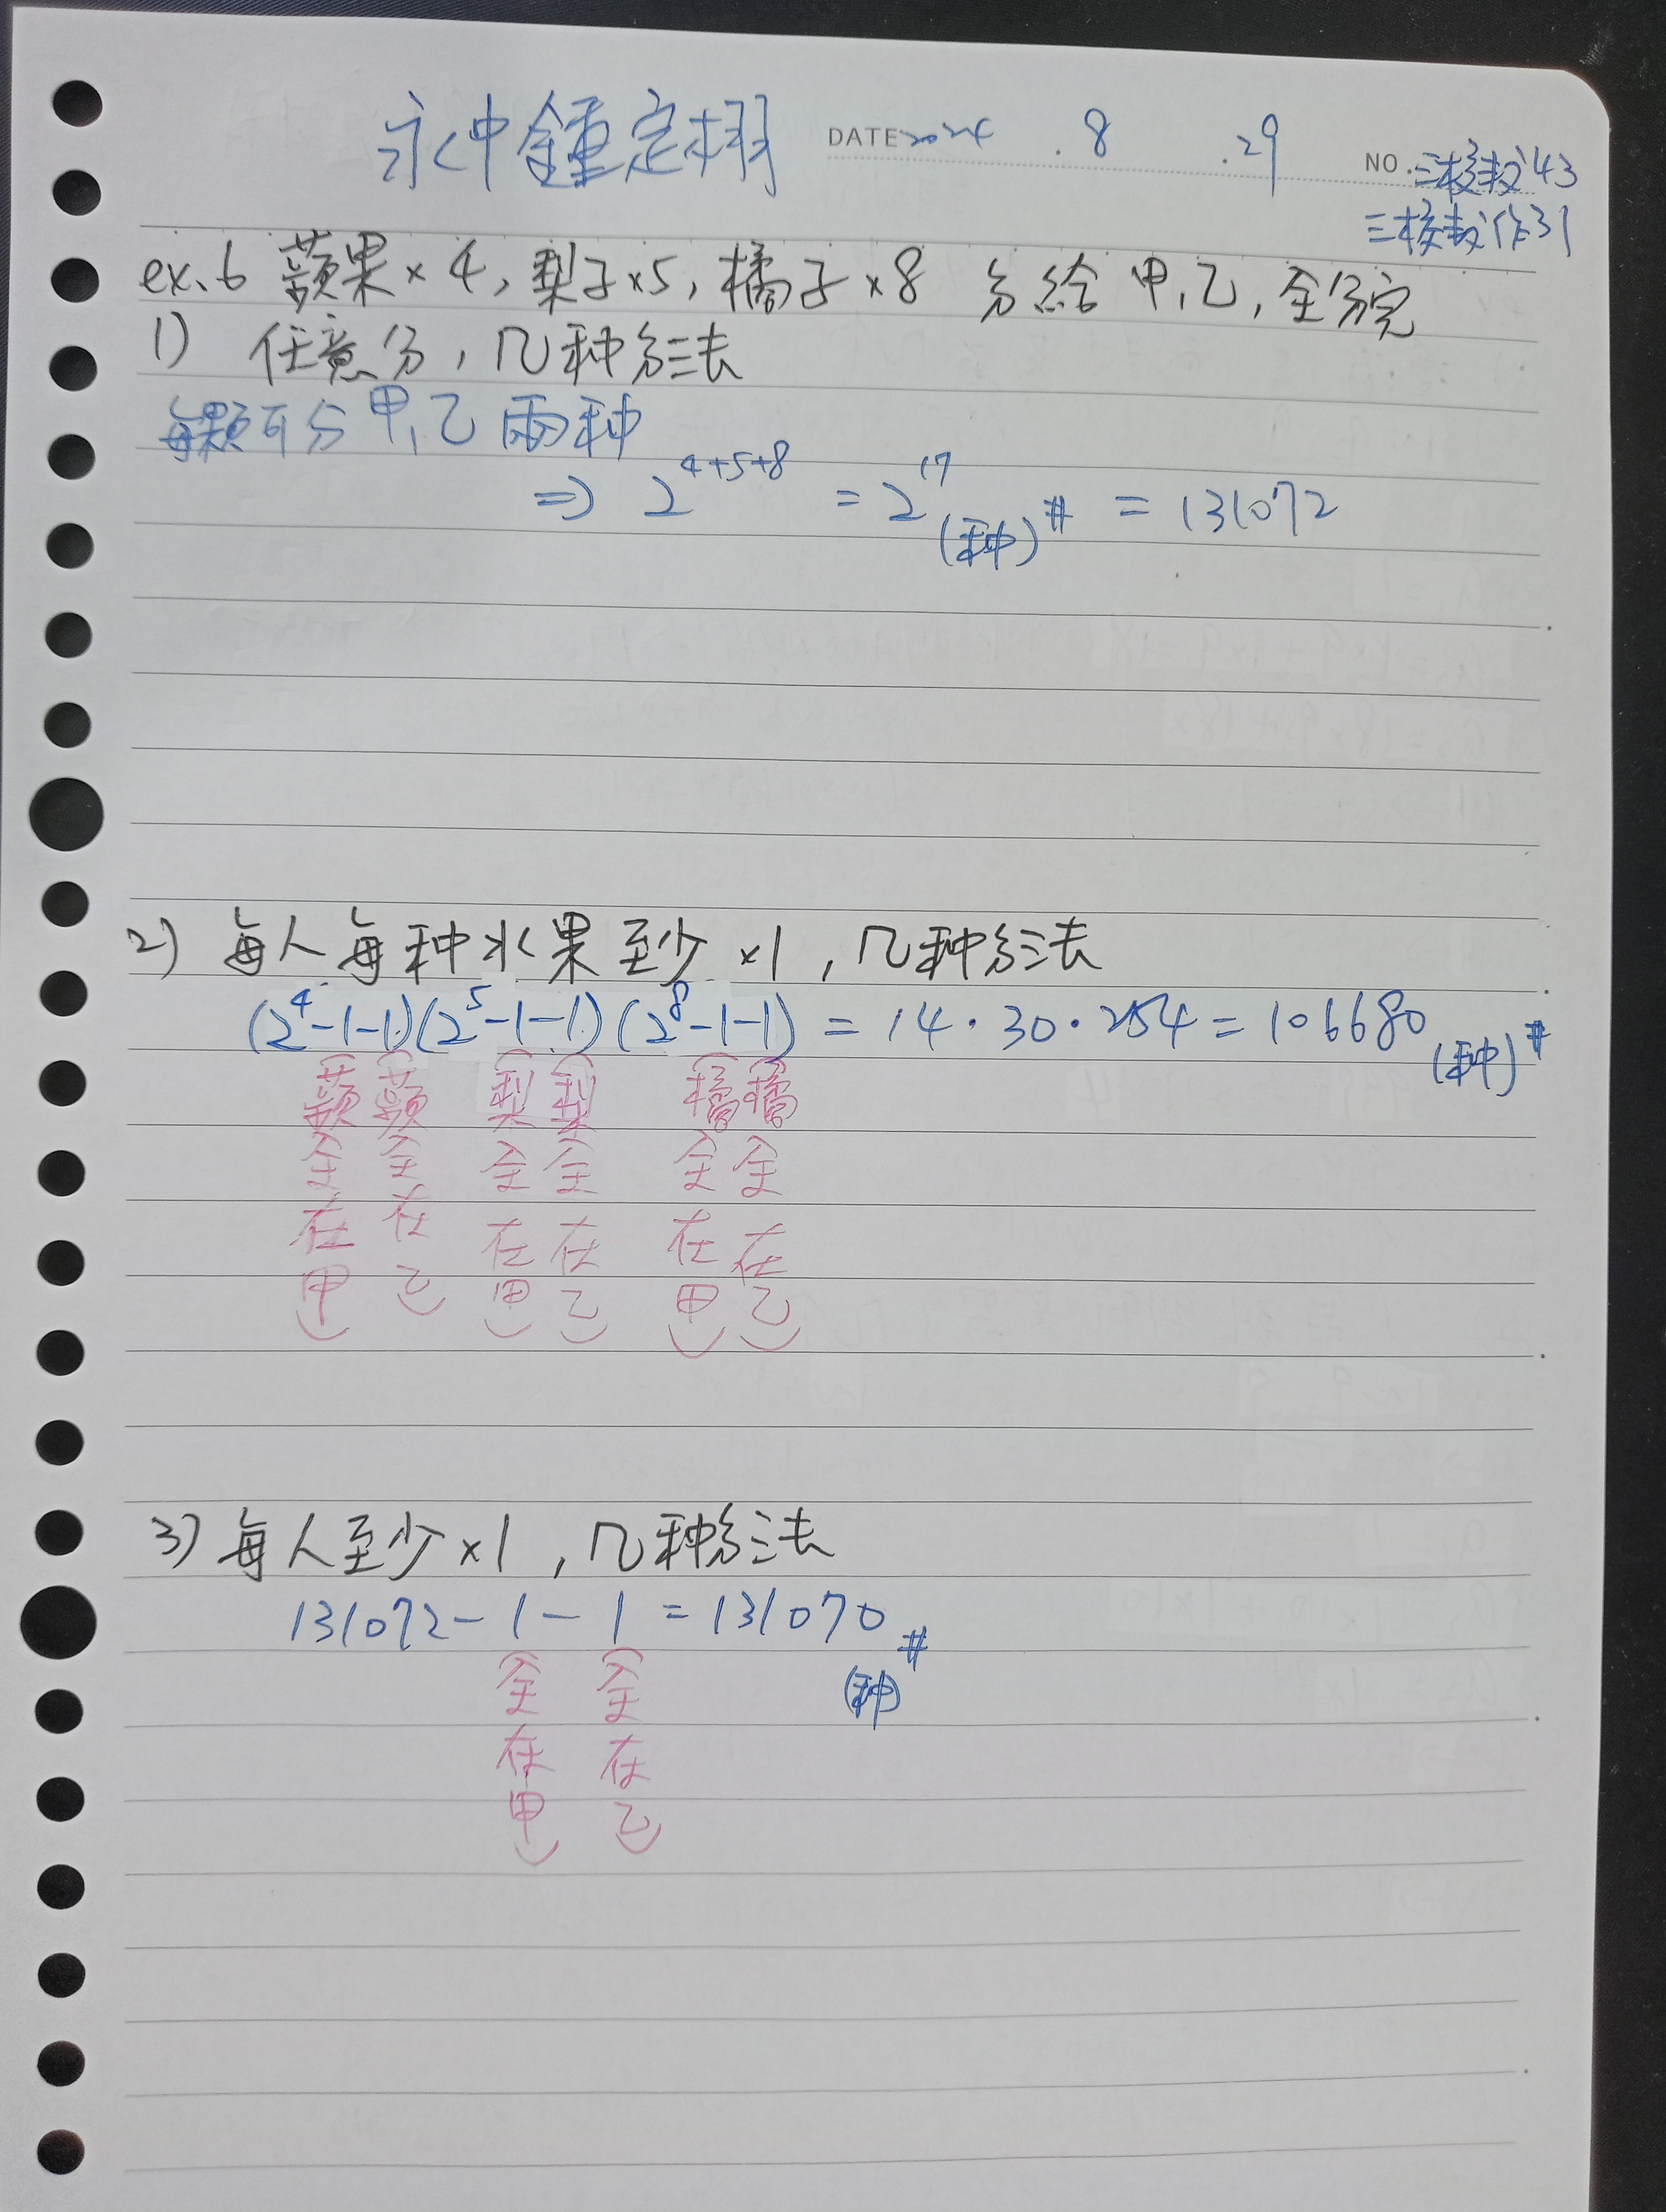 永中鍾定栩 DATE 2024 .8 .29 NO. 三樣教43
三樣教作31
ex.6 蘋果×4, 梨子×5, 橘子×8 分給甲,乙,全分完
1) 任意分,几种分法
每顆可分甲,乙兩种
⇒ 2^{4+5+8} = 2^{17} (种)# = 131072
2) 每人每种水果至少×1,几种分法
(2^4-1-1)(2^5-1-1)(2^8-1-1) = 14·30·254 = 106680 (种)#
(蘋全在甲) (蘋全在乙) (梨全在甲) (梨全在乙) (橘全在甲) (橘全在乙)
3) 每人至少×1,几种分法
131072-1-1 = 131070 (种)#
(全在甲) (全在乙)